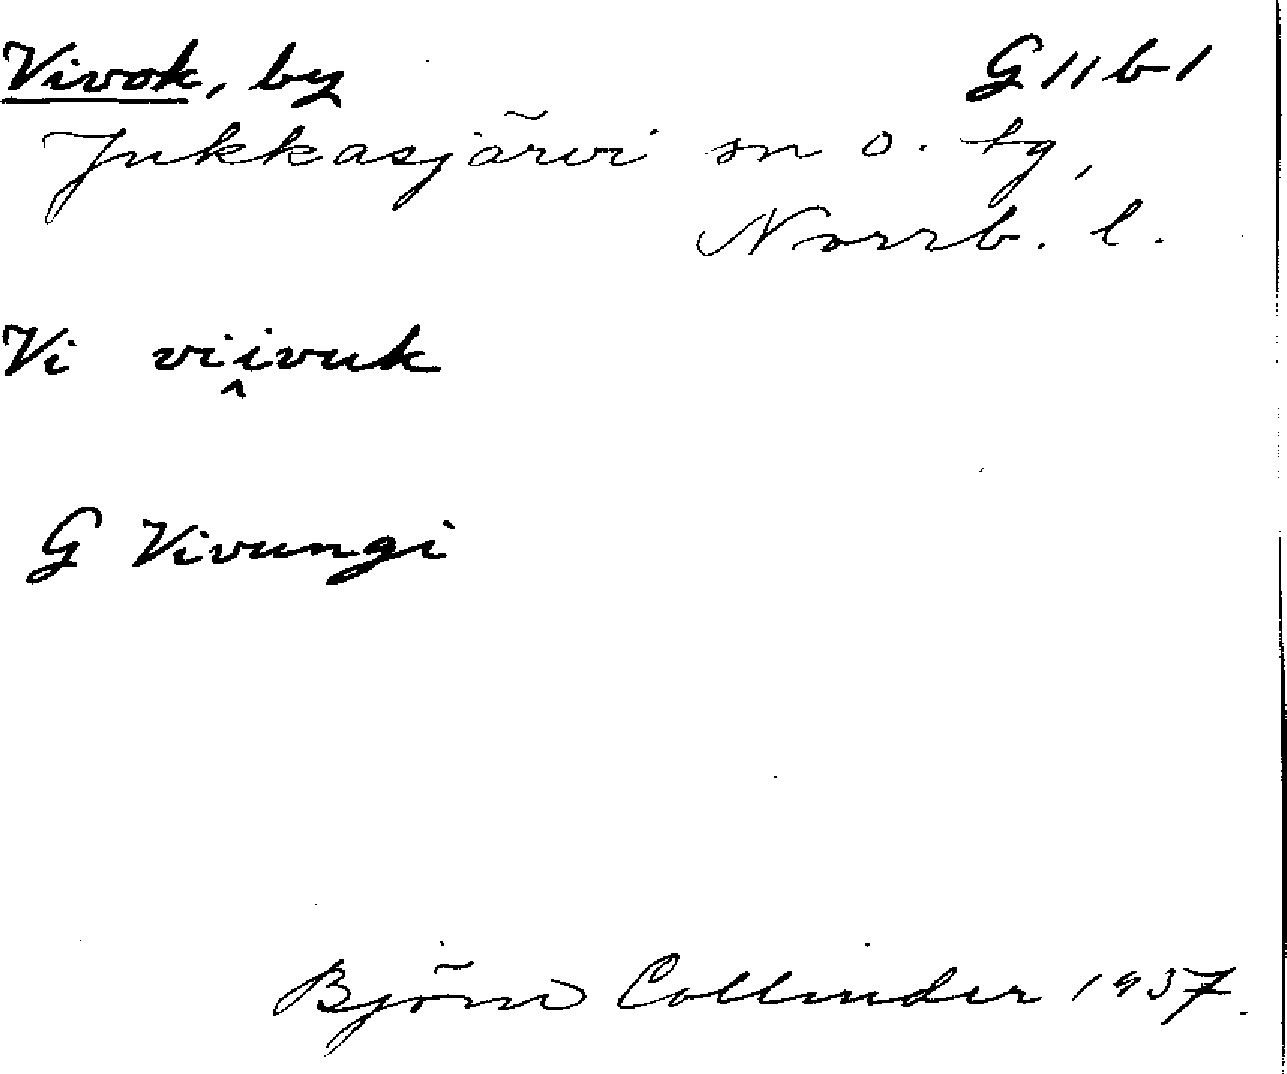 Vivok, by G 11 b 1
Jukkasjärvi sn o. tg,
Norrb. l.
Vi viivuk
^
G Vivungi
Björn Collinder 1937.